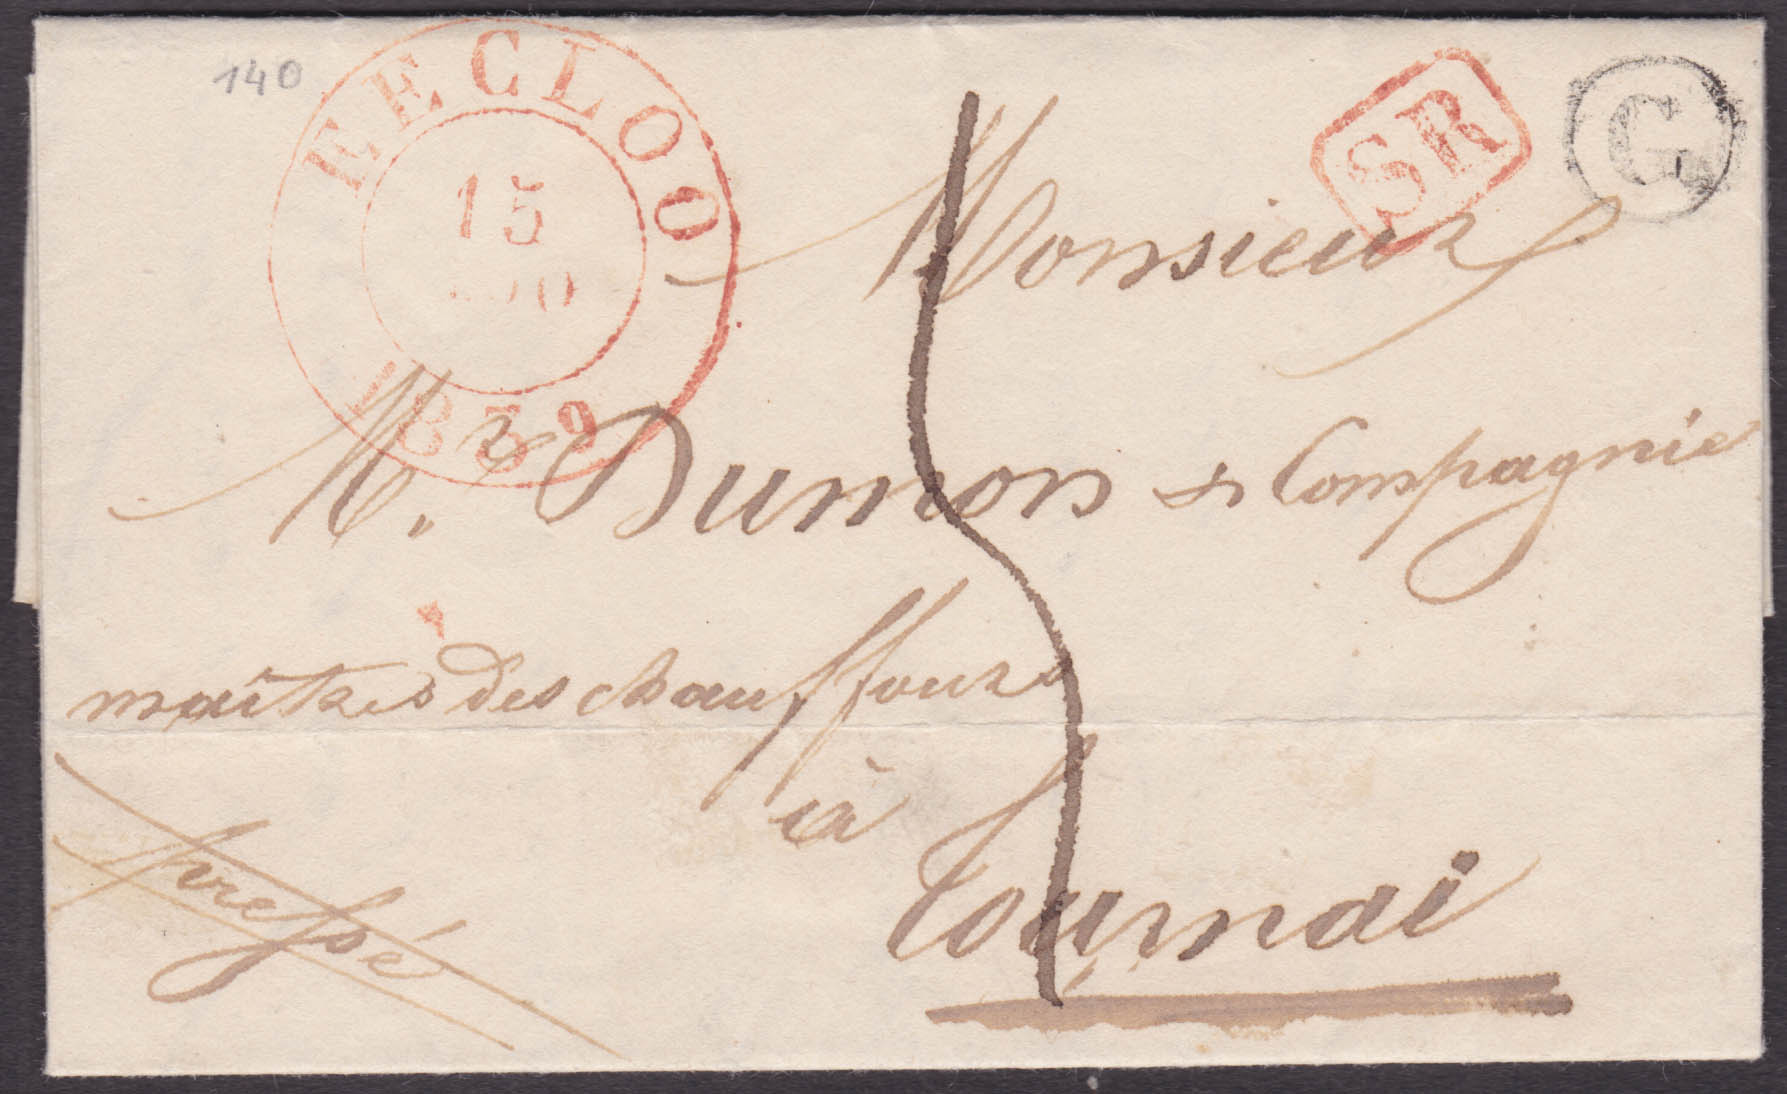 140
EECLOO
15
1839
SR
G
Monsieur
Mr. Dumon & Compagnie
maîtres des chauffours
à
Tournai
pressé